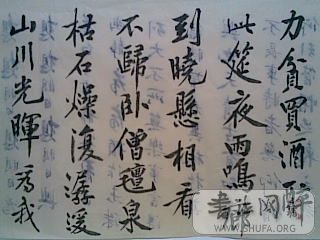 力貧買酒醉
此筵夜雨鳴廊
到曉懸相看
不歸卧僧氊泉
枯石燥復潺湲
山川光暉為我
WWW.SHUFA.ORG